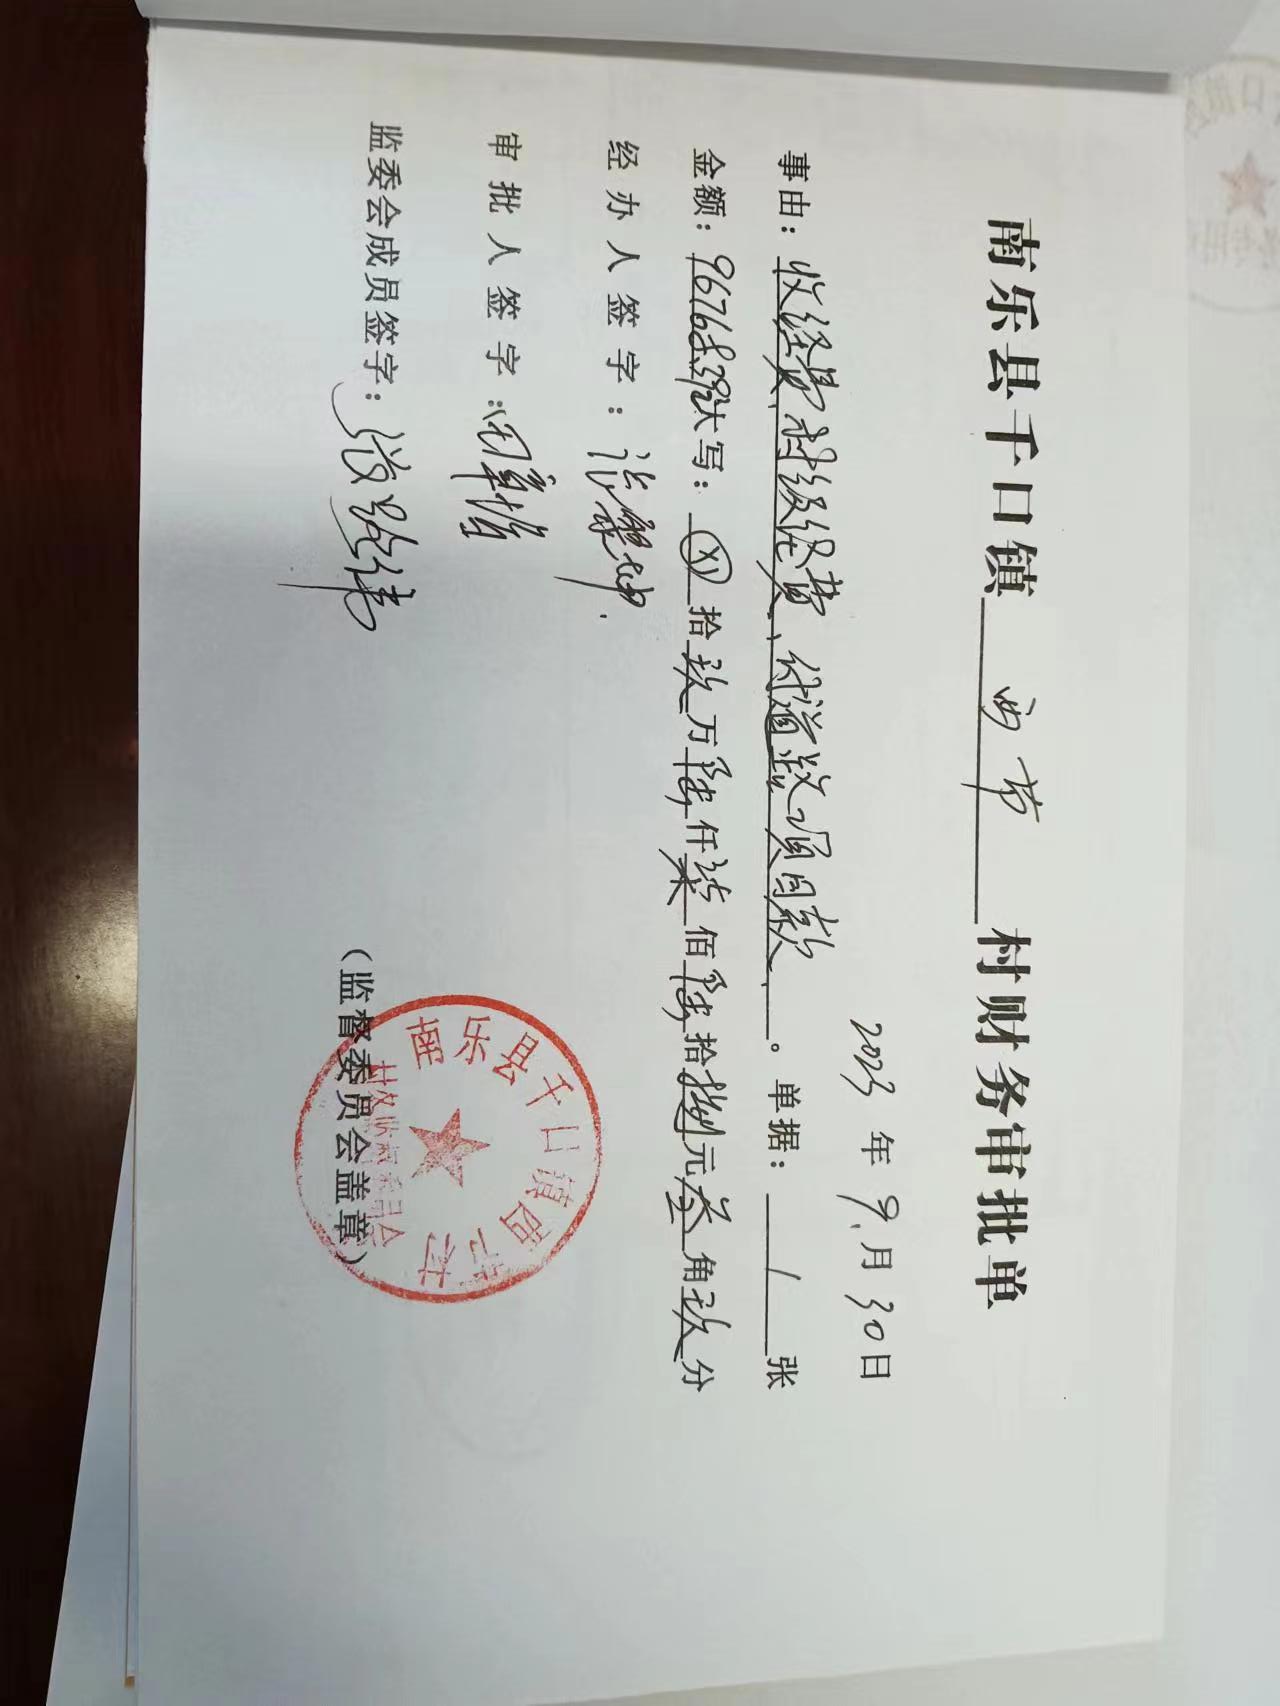 南乐县千口镇 西节 村财务审批单
2023 年 9 月 30 日
事由：收经费村级经费，付道路项目款。单据：1 张
金额：96768.39 大写：ⓧ 拾 玖 万 陆 仟 柒 佰 陆 拾 捌 元 叁 角 玖 分
经办人签字：
审批人签字：
监委会成员签字：
（监督委员会盖章）
南乐县千口镇西节村
村务监督委员会